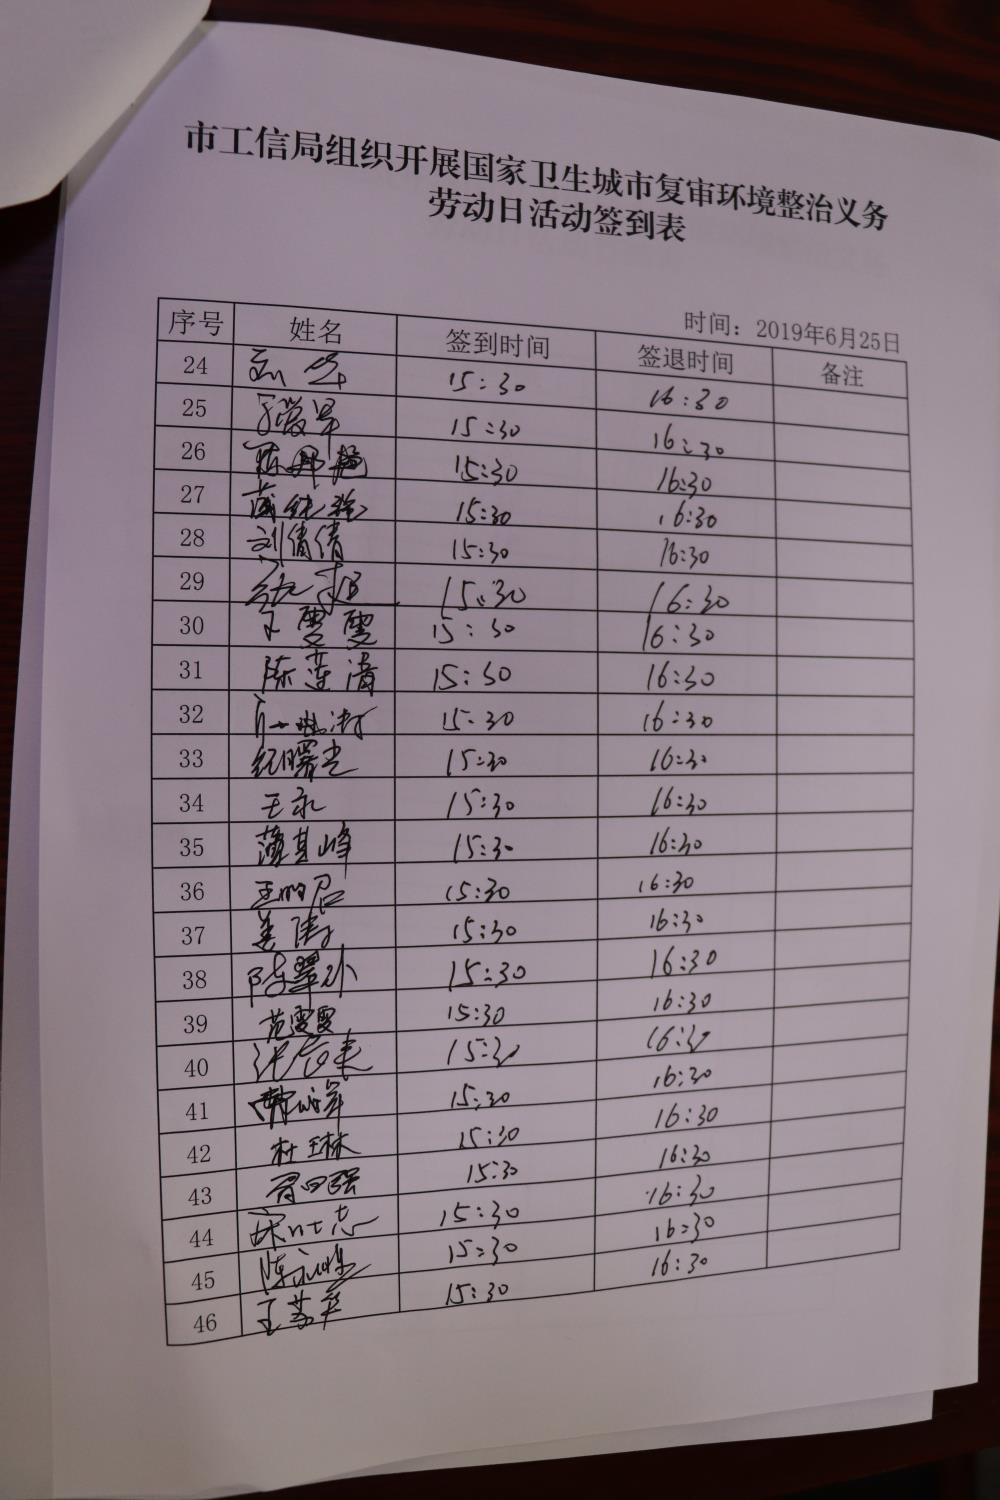 市工信局组织开展国家卫生城市复审环境整治义务
劳动日活动签到表
时间：2019年6月25日
序号 姓名 签到时间 签退时间 备注
24 15:30 16:30
25 15:30 16:30
26 15:30 16:30
27 15:30 16:30
28 刘倩倩 15:30 16:30
29 15:30 16:30
30 王雯雯 15:30 16:30
31 陈莲清 15:30 16:30
32 15:30 16:30
33 纪曙光 15:30 16:30
34 王永 15:30 16:30
35 薄其峰 15:30 16:30
36 15:30 16:30
37 姜 15:30 16:30
38 15:30 16:30
39 范雯雯 15:30 16:30
40 15:30 16:30
41 15:30 16:30
42 杜玉林 15:30 16:30
43 15:30 16:30
44 15:30 16:30
45 15:30 16:30
46 15:30 16:30